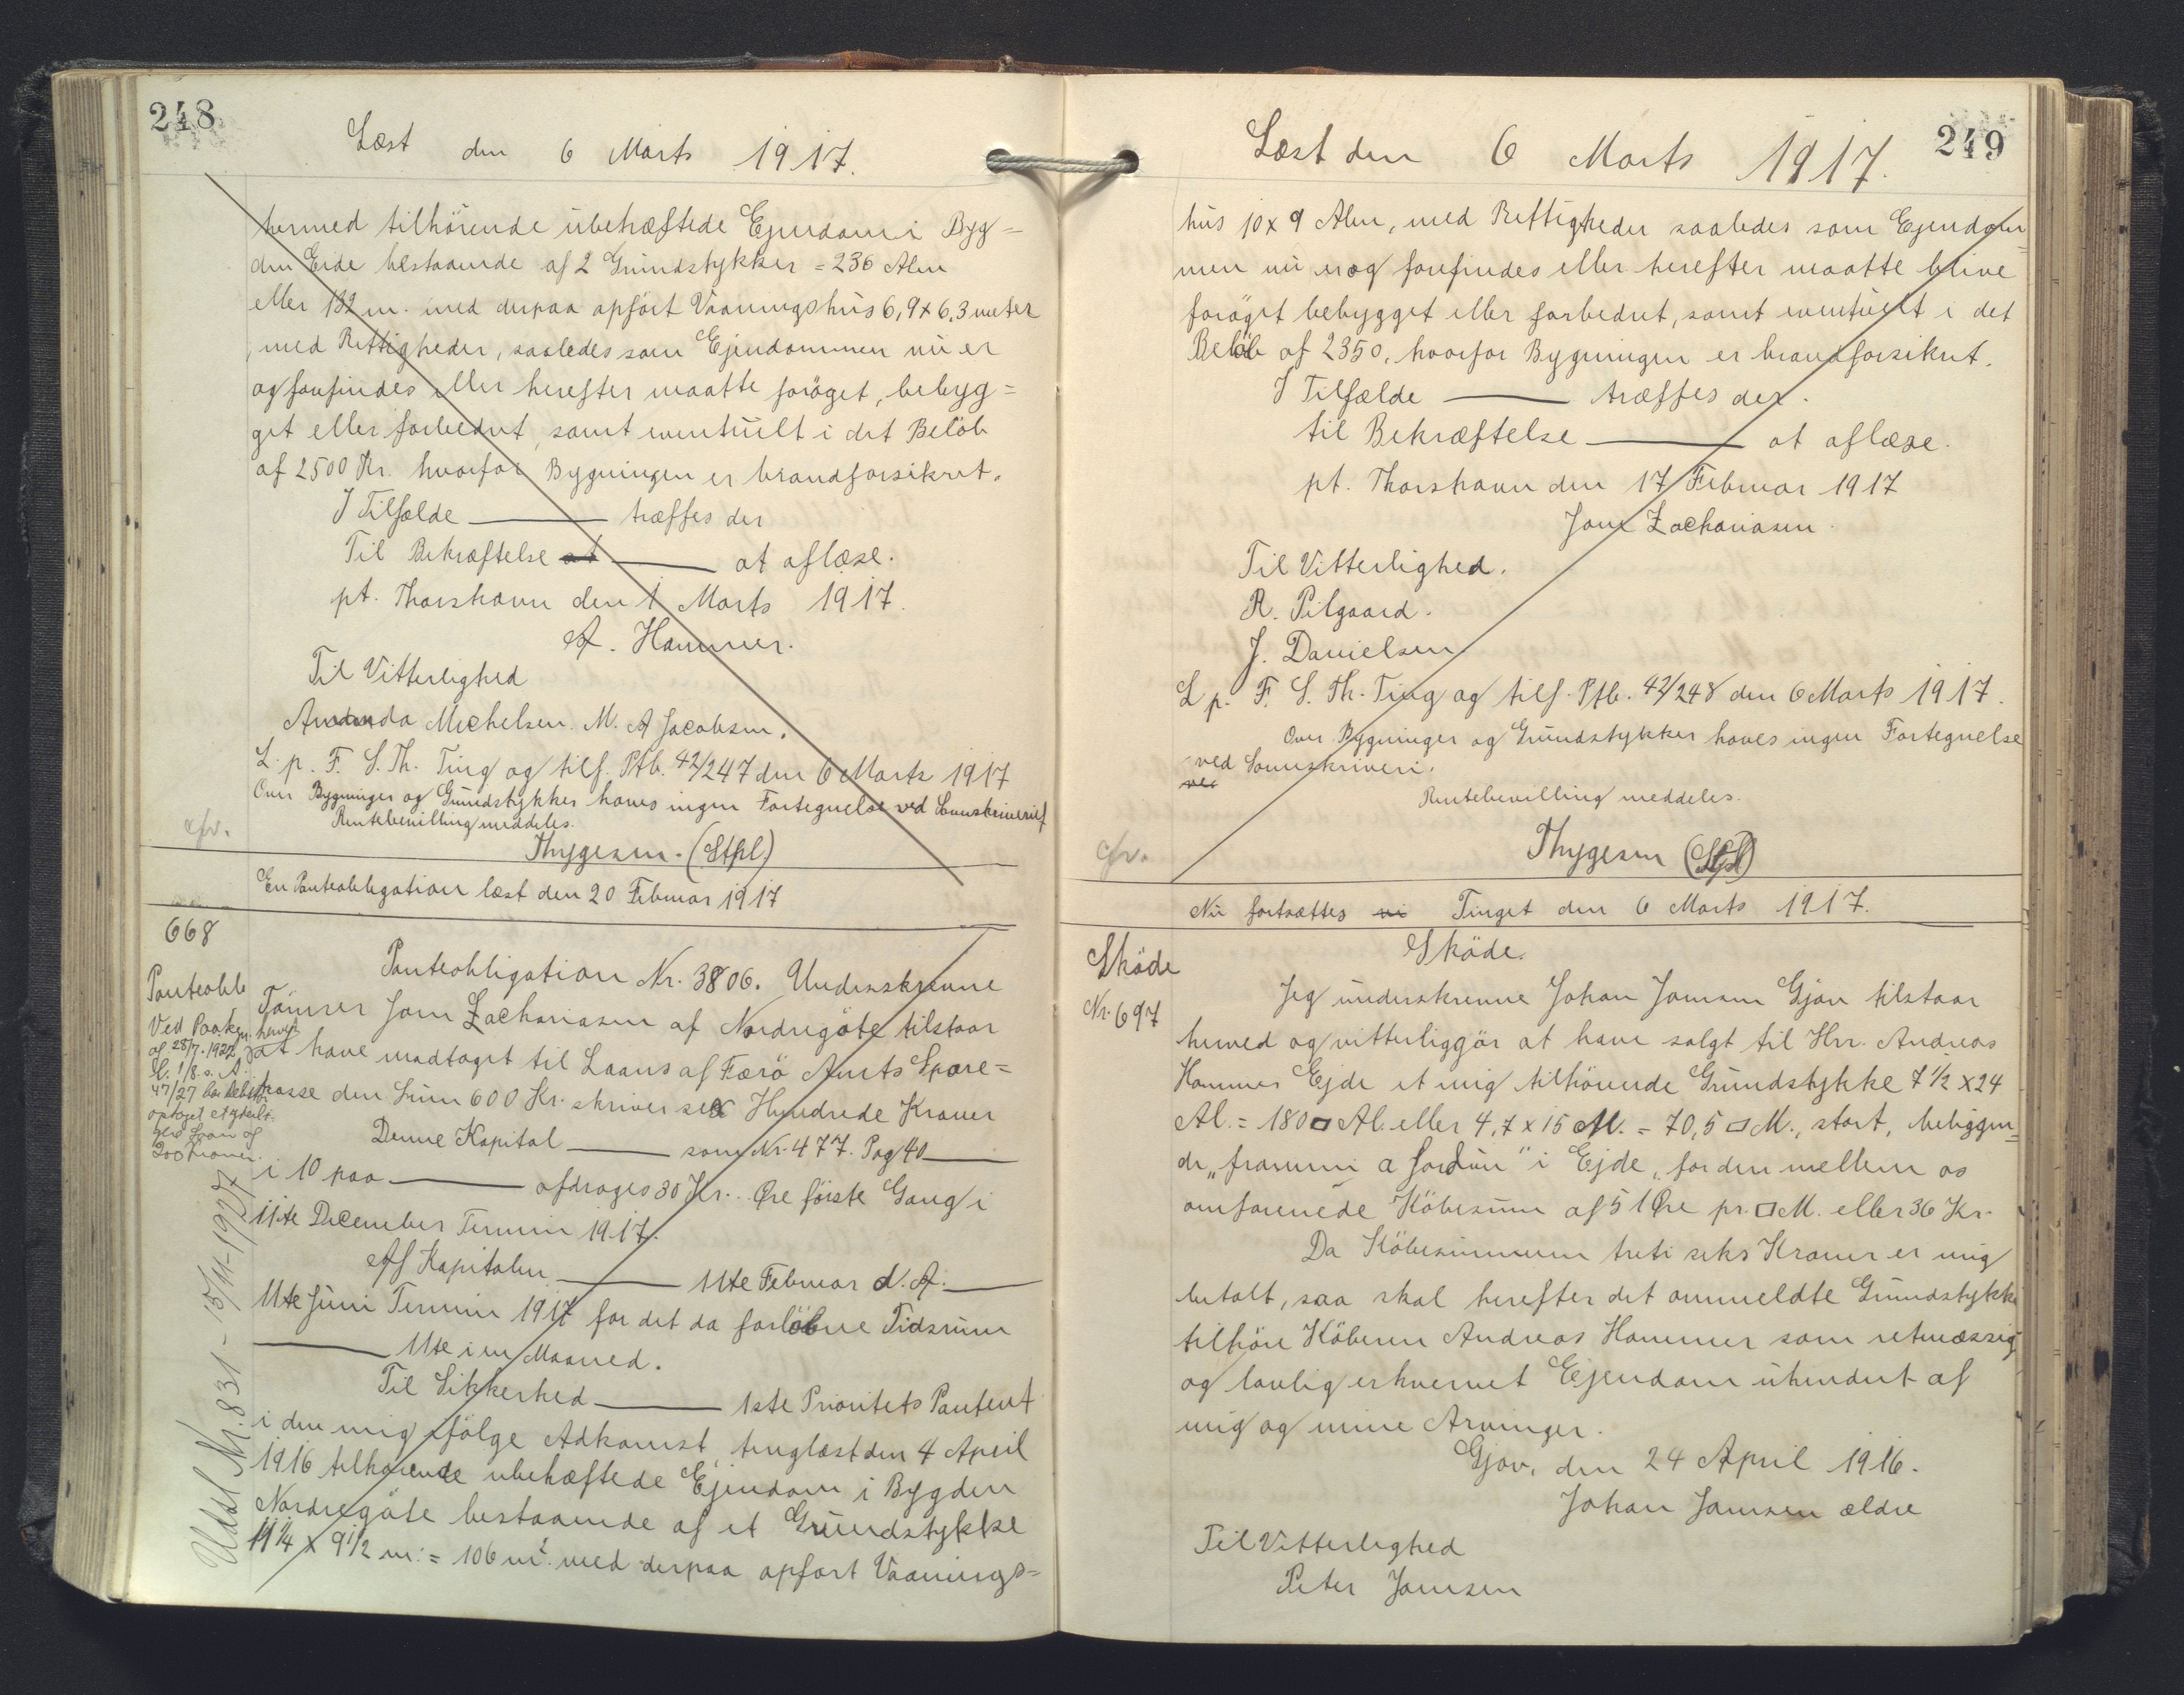 248
Læst den 6 Marts 1917.
hermed tilhörende ubehæftede Ejendom i Byg=
den Eide bestaaende af 2 Grundstykker = 236 Alen
eller 132 m. med derpaa opfört Vaaningshus 6,9 x 6,3 meter
, med Rettigheder, saaledes som Ejendommen nu er
og forefindes eller herefter maatte foröget, bebyg=
get eller forbedret, samt eventuelt i det Belöb
af 2500 Kr. hvorfor Bygningen er brandforsikret.
I Tilfælde ——— træffes der
Til Bekræftelse at ——— at aflæse.
pt. Thorshavn den 1 Marts 1917.
A. Hammer.
Til Vitterlighed
Amanda Michelsen. M. A Jacobsen.
L. p. F. S. Th. Ting og tilf. Ptb. 42/247 den 6 Marts 1917
Over Bygninger og Grundstykker haves ingen Fortegnelse ved Sorenskriveriet
Rentebevilling meddeles.
cfr.
Thygesen. (Stpl.)
En Panteobligation læst den 20 Februar 1917
668
Panteobl
Ved Paategn. herved
af 28/7. 1922
l. 1/8. s. A.
47/27 har debitor
optaget et yderli-
gere Laan af
200 Kroner.
Udsl Nr. 831 - 15/11-1927
Panteobligation Nr. 3806. Underskrevne
Tömrer Jom Zachariasen af Nordregöte tilstaar
at have modtaget til Laans af Færö Amts Spare=
kasse den Sum 600 Kr. skriver sex Hundrede Kroner
Denne Kapital ——— som Nr. 477. Pag 40 ———
i 10 paa ——— afdrages 30 Kr. . Öre förste Gang i
11te December Termin 1917.
Af Kapitalen ——— 11te Februar d. A. ———
11te Juni Termin 1917 for det da forlöbne Tidsrum
——— 11te i en Maaned.
Til Sikkerhed ——— 1ste Prioritets Panteret
i den mig ifölge Adkomst, tinglæst den 4 April
1916 tilhörende ubehæftede Ejendom i Bygden
Nordregöte bestaaende af et Grundstykke
11 1/4 x 9 1/2 m: = 106 m². med derpaa opfört Vaanings=
249
Læst den 6 Marts 1917.
hus 10 x 9 Alen, med Rettigheder saaledes som Ejendom=
men nu er og forefindes eller herefter maatte blive
foröget bebygget eller forbedret, samt eventuelt i det
Belöb af 2350, hvorfor Bygningen er brandforsikret.
I Tilfælde ——— træffes der.
til Bekræftelse ——— at aflæse.
pt. Thorshavn den 17 Februar 1917
Jom Zachariasen.
Til Vitterlighed.
R. Pilgaard.
J. Danielsen
L p. F. S. Th. Ting og tilf. Ptb. 42/248 den 6 Marts 1917.
Over Bygninger og Grundstykker haves ingen Fortegnelse
ved Sorenskriveri.
ved
Rentebevilling meddeles.
cfr.
Thygesen (Stpl)
Nu fortsættes vi Tinget den 6 Marts 1917.
Sköde
Nr. 697
Sköde.
Jeg underskrevne Johan Joensen Gjov tilstaar
herved og vitterliggör at have solgt til Hrr. Andreas
Hammer Ejde et mig tilhörende Grundstykke 7 1/2 x 24
Al. = 180 □ Al. eller 4,7 x 15 M. = 70,5 □ M., stort, beliggen=
de "frammi a fordun" i Ejde, for den mellem os
omforenede Köbesum af 51 Öre pr. □ M. eller 36 Kr.
Da Köbesummen treti seks Kroner er mig
betalt, saa skal herefter det ommeldte Grundstykke
tilhöre Köberen Andreas Hammer som retmæssig
og lovlig erhvervet Ejendom uhindret af
mig og mine Arvinger.
Gjov, den 24 April 1916.
Johan Joensen ældre
Til Vitterlighed
Peter Joensen